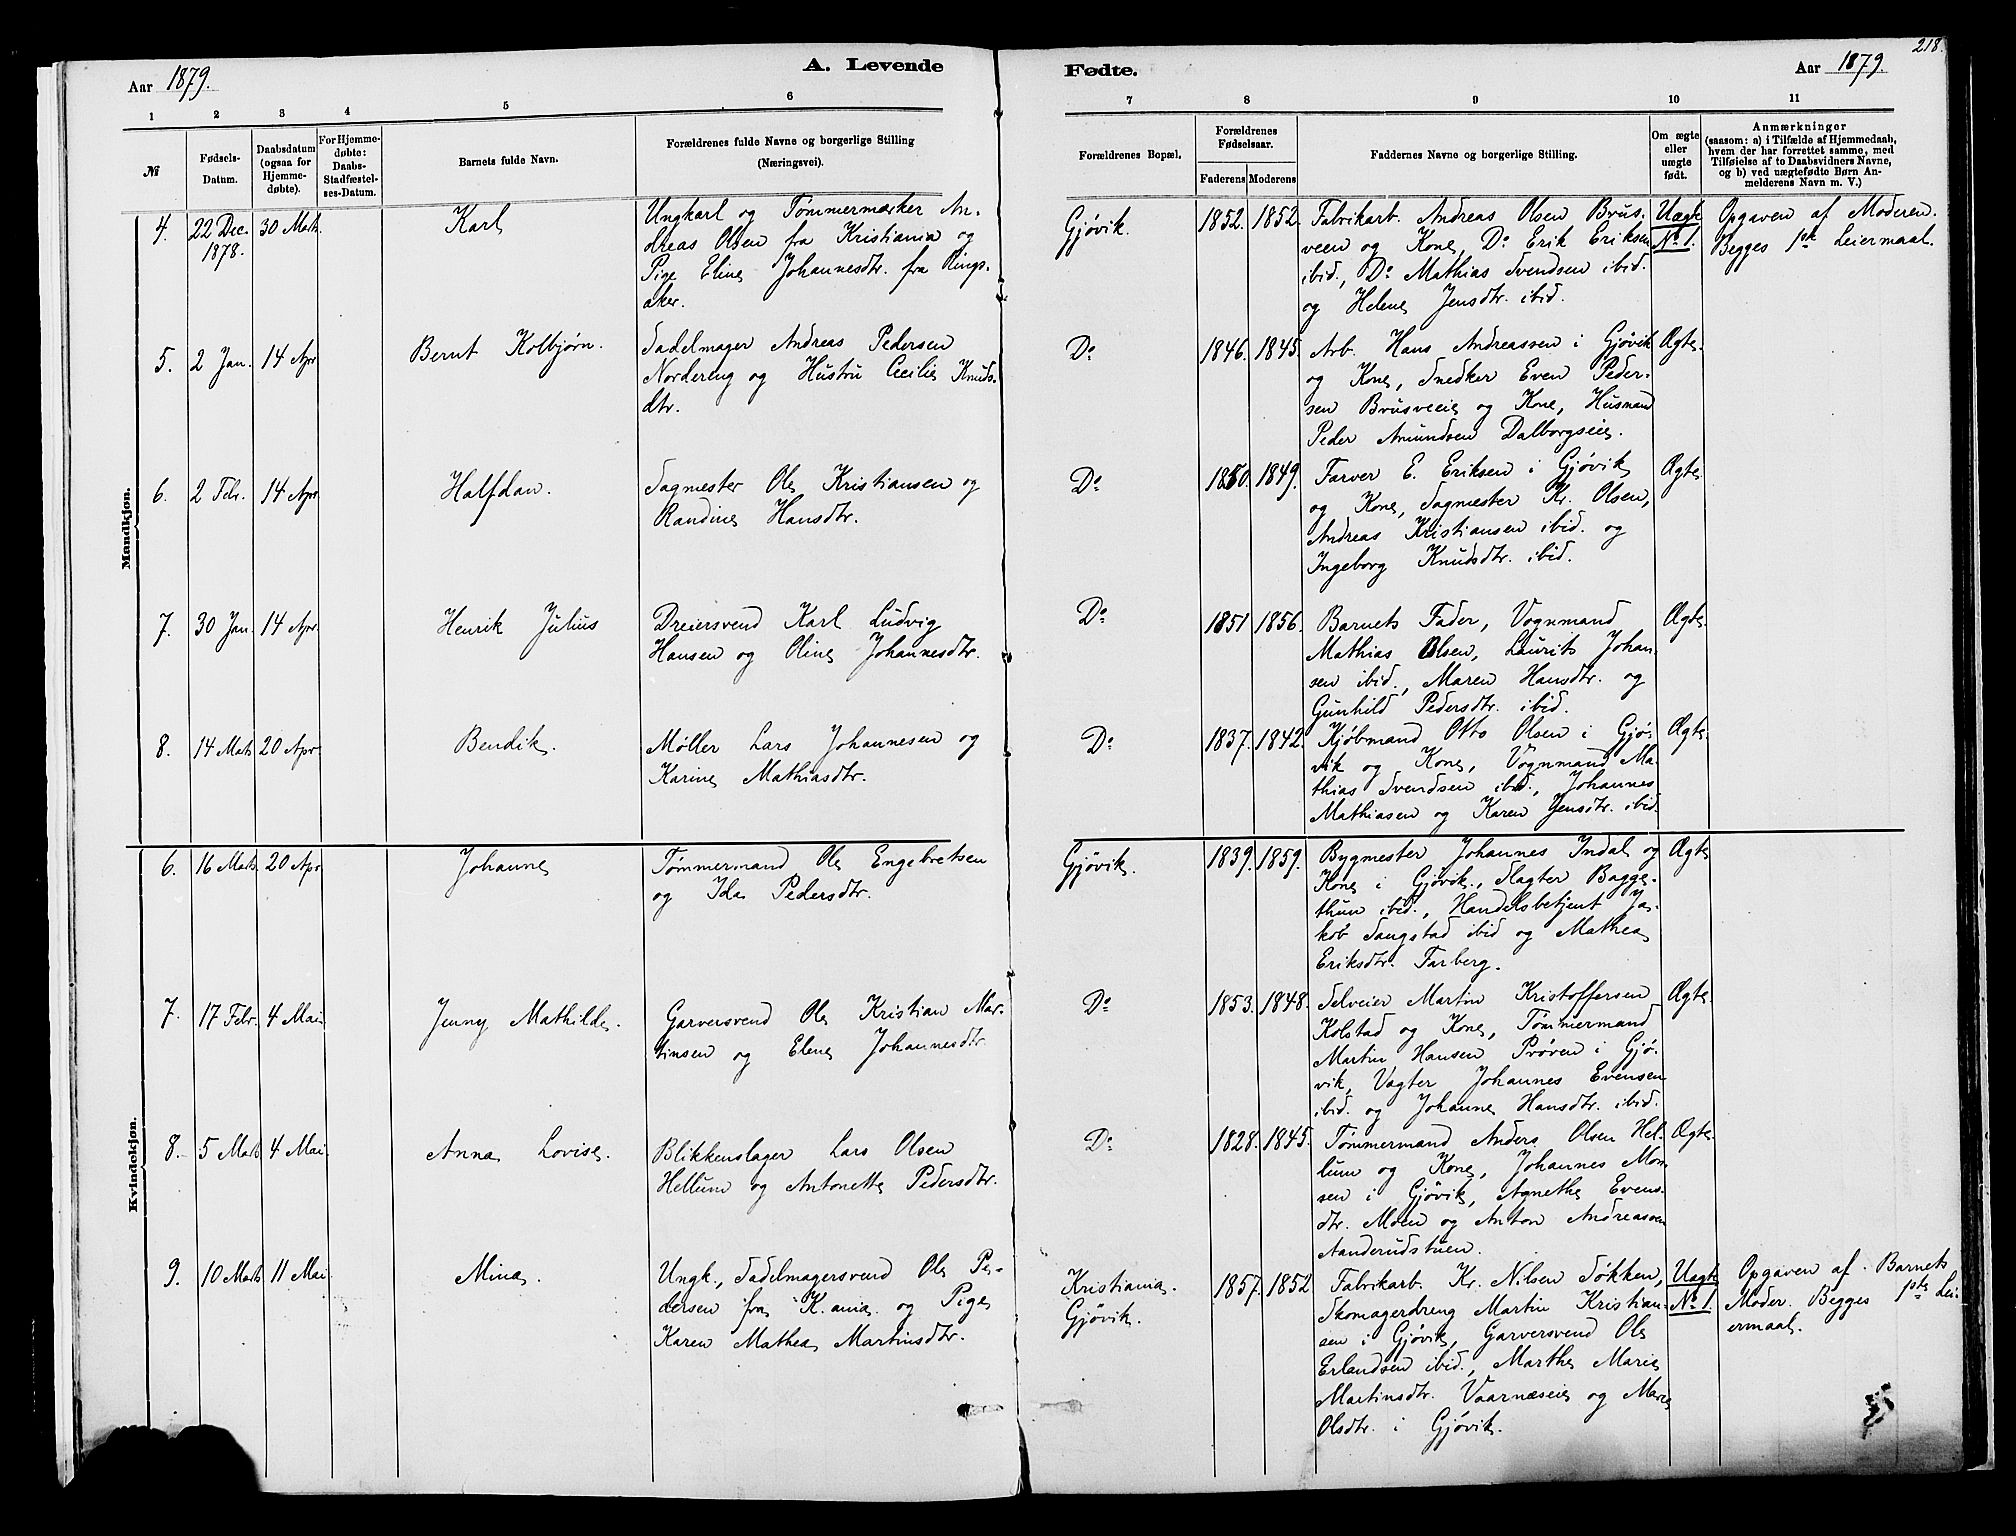 218.
Aar 1879.
A. Levende
Fødte.
Aar 1879.
1
2
3
4
5
6
7
8
9
10
11
№
Fødsels-
Datum.
Daabsdatum
(ogsaa for
Hjemme-
døbte).
For Hjemme-
døbte:
Daabs-
Stadfæstel-
ses-Datum.
Barnets fulde Navn.
Forældrenes fulde Navne og borgerlige Stilling
(Næringsvei).
Forældrenes Bopæl.
Forældrenes
Fødselsaar.
Faderens
Moderens
Faddernes Navne og borgerlige Stilling.
Om ægte
eller
uægte
født.
Anmærkninger
(saasom: a) i Tilfælde af Hjemmedaab,
hvem der har forrettet samme, med
Tilføielse af to Daabsvidners Navne,
og b) ved uægtefødte Børn An-
melderens Navn m. V.)
Mandkjøn.
4.
22 Dec.
1878.
30 Marts.
Karl
Ungkarl og Tømmermærker An-
dreas Olsen fra Kristiania og
Pige Eline Johannesdtr. fra Rings-
aker.
Gjøvik.
1852.
1852.
Fabrikarb. Andreas Olsen Brus-
veen og Kone, Do Erik Eriksen
ibid., Do Mathias Svendsen ibid.
og Helene Jensdtr. ibid.
Uægte
No 1.
Opgaven af Moderen.
Begges 1ste Leiermaal.
5.
2 Jan.
14 Apr.
Bernt Kolbjørn.
Sadelmager Andreas Pedersen
Nordereng og Hustru Cecilie Knuds-
dtr.
Do
1846.
1845.
Arb. Hans Andreassen i Gjøvik
og Kone, Snedker Even Peder-
sen Brusveeie og Kone, Husmand
Peder Amundsen Dalborgseie.
Ægte.
6.
2 Febr.
14 Apr.
Halfdan.
Sagmester Ole Kristiansen og
Randine Hansdtr.
Do
1850.
1849.
Farver E. Eriksen i Gjøvik
og Kone, Sagmester Kr. Olsen,
Andreas Kristiansen ibid. og
Ingeborg Knudsdtr. ibid.
Ægte.
7.
30 Jan.
14 Apr.
Henrik Julius
Dreiersvend Karl Ludvig
Hansen og Oline Johannesdtr.
Do
1851
1856.
Barnets Fader, Vognmand
Mathias Olsen, Laurits Johan-
sen ibid., Maren Hansdtr. og
Gunhild Pedersdtr. ibid.
Ægte.
8.
14 Marts
20 Apr.
Bendik.
Møller Lars Johannesen og
Karine Mathiasdtr.
Do
1837.
1842.
Kjøbmand Otto Olsen i Gjø-
vik og Kone, Vognmand Ma-
thias Svendsen ibid., Johannes
Mathiasen og Karen Jensdtr. ibid.
Ægte.
Kvindekjøn.
6.
16 Marts.
20 Apr.
Johanne
Tømmermand Ole Engebretsen
og Ida Pedersdtr.
Gjøvik.
1839.
1859.
Bygmester Johannes Indal og
Kone i Gjøvik, Slagter Bagge-
thun ibid., Handelsbetjent Ja-
kob Sangstad ibid og Mathea
Eriksdtr. Farberg.
Ægte
7.
17 Febr.
4 Mai
Jenny Mathilde.
Garversvend Ole Kristian Mar-
tinsen og Elene Johannesdtr.
Do
1853.
1848.
Selveier Martin Kristoffersen
Kolstad og Kone, Tømmermand
Martin Hansen Prøven i Gjø-
vik, Vagter Johannes Evensen
ibid. og Johanne Hansdtr. ibid.
Ægte.
8.
5 Marts
4 Mai
Anna Lovise.
Blikkenslager Lars Olsen
Hellum og Antonette Pedersdtr.
Do
1828.
1845.
Tømmermand Anders Olsen Hel-
lum og Kone, Johannes Mon-
sen i Gjøvik, Agnethe Evens-
dtr. Moen og Anton Andreassen
Aanderudstuen.
Ægte.
9.
10 Marts
11 Mai
Mina.
Ungk., Sadelmagersvend Ole Pe-
dersen fra K.ania. og Pige
Karen Mathea Martinsdtr.
Kristiania.
Gjøvik.
1857.
1852
Fabrikarb. Kr. Nilsen Søkken,
Skomagerdreng Martin Kristian-
sen i Gjøvik, Garversvend Ole
Erlandsen ibid., Marthe Marie
Martinsdtr. Vaarnæseie og Maren
Olsdtr. i Gjøvik.
Uægte
No 1.
Opgaven af Barnets
Moder. Begges 1ste Lei-
ermaal.